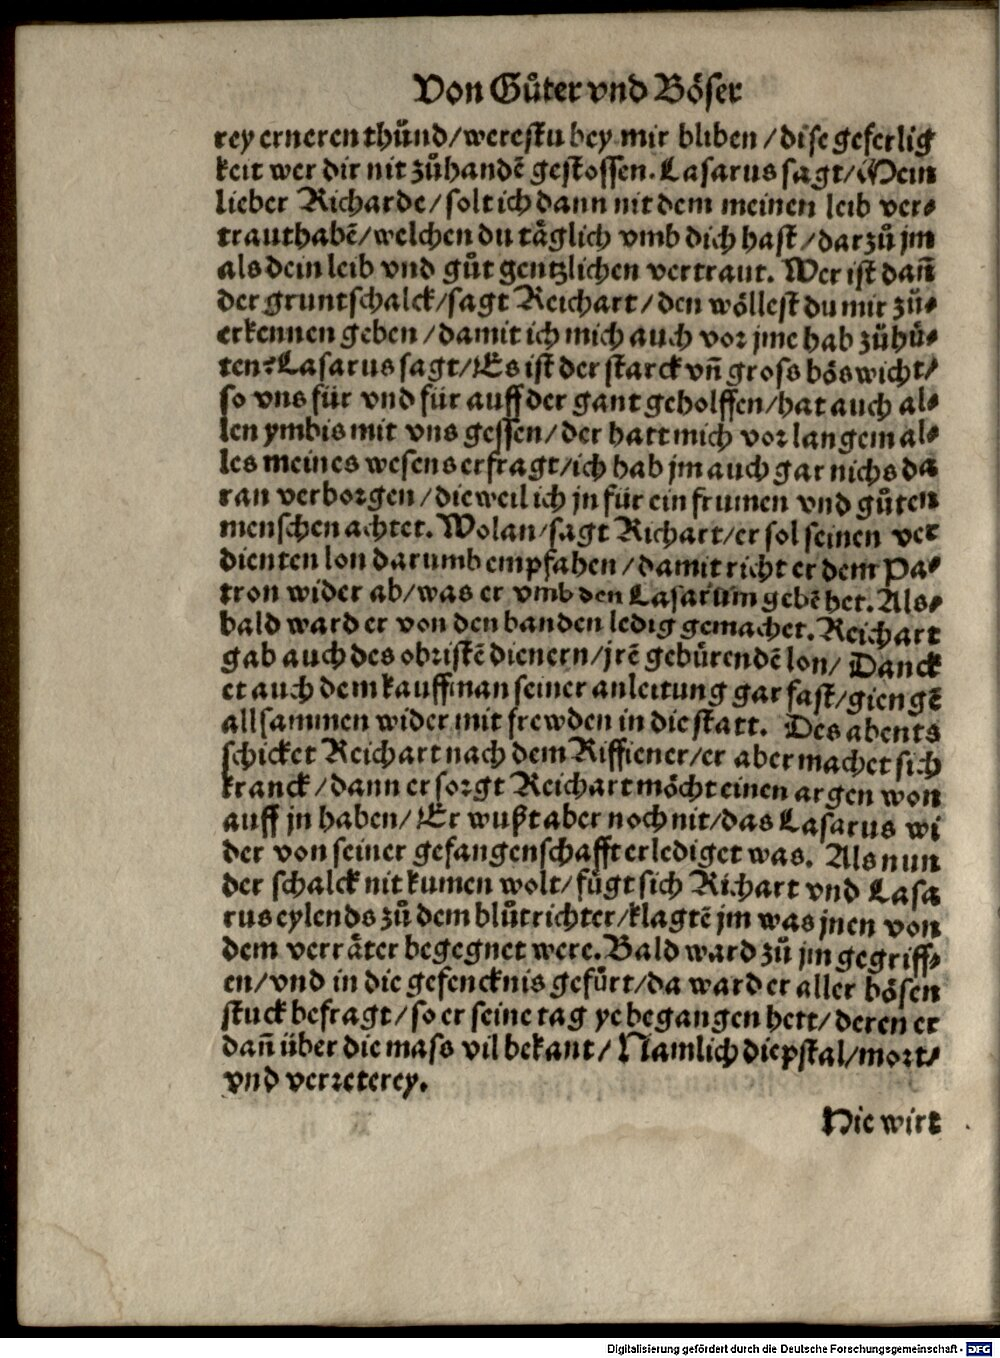 Von Gůter vnd Böser
rey erneren thůnd/werestu bey mir bliben/dise geferlig
keit wer dir nit zůhandẽ gestossen. Lasarus sagt/Mein
lieber Richarde/solt ich dann nit dem meinen leib ver⸗
traut habẽ/welchen du täglich vmb dich hast/darzů jm
als dein leib vnd gůt gentzlichen vertraut. Wer ist dañ
der gruntschalck/sagt Reichart/den wöllest du mir zů⸗
erkennen geben/damit ich mich auch vor jme hab zůhü⸗
ten? Lasarus sagt/Es ist der starck vñ gross böswicht/
so vns für vnd für auff der gant geholffen/hat auch al⸗
len ymbis mit vns gessen/der hatt mich vor langem al⸗
les meines wesens erfragt/ich hab jm auch gar nichs da
ran verborgen/dieweil ich jn für ein frumen vnd gůten
menschen achtet. Wolan/sagt Richart/er sol seinen ver
dienten lon darumb empfahen/damit richt er dem Pa⸗
tron wider ab/was er vmb den Lasarum gebẽ het. Als⸗
bald ward er von den banden ledig gemachet. Reichart
gab auch des obristẽ dienern/jrẽ gebürendẽ lon/Danck
et auch dem kauffman seiner anleitung gar fast/giengẽ
allsammen wider mit frewden in die statt. Des abents
schicket Reichart nach dem Riffiener/er aber machet sich
kranck/dann er sorgt Reichart möcht einen argen won
auff jn haben/Er wußt aber noch nit/das Lasarus wi
der von seiner gefangenschafft erlediget was. Als nun
der schalck nit kumen wolt/fügt sich Richart vnd Lasa
rus eylends zů dem blůtrichter/klagtẽ jm was jnen von
dem verräter begegnet were. Bald ward zů jm gegriff⸗
en/vnd in die gefencknis gefürt/da ward er aller bösen
stuck befragt/so er seine tag ye begangen hett/deren er
dañ über die mass vil bekant/Namlich diepstal/mort/
vnd verreterey.
Hie wirt
Digitalisierung gefördert durch die Deutsche Forschungsgemeinschaft - DFG